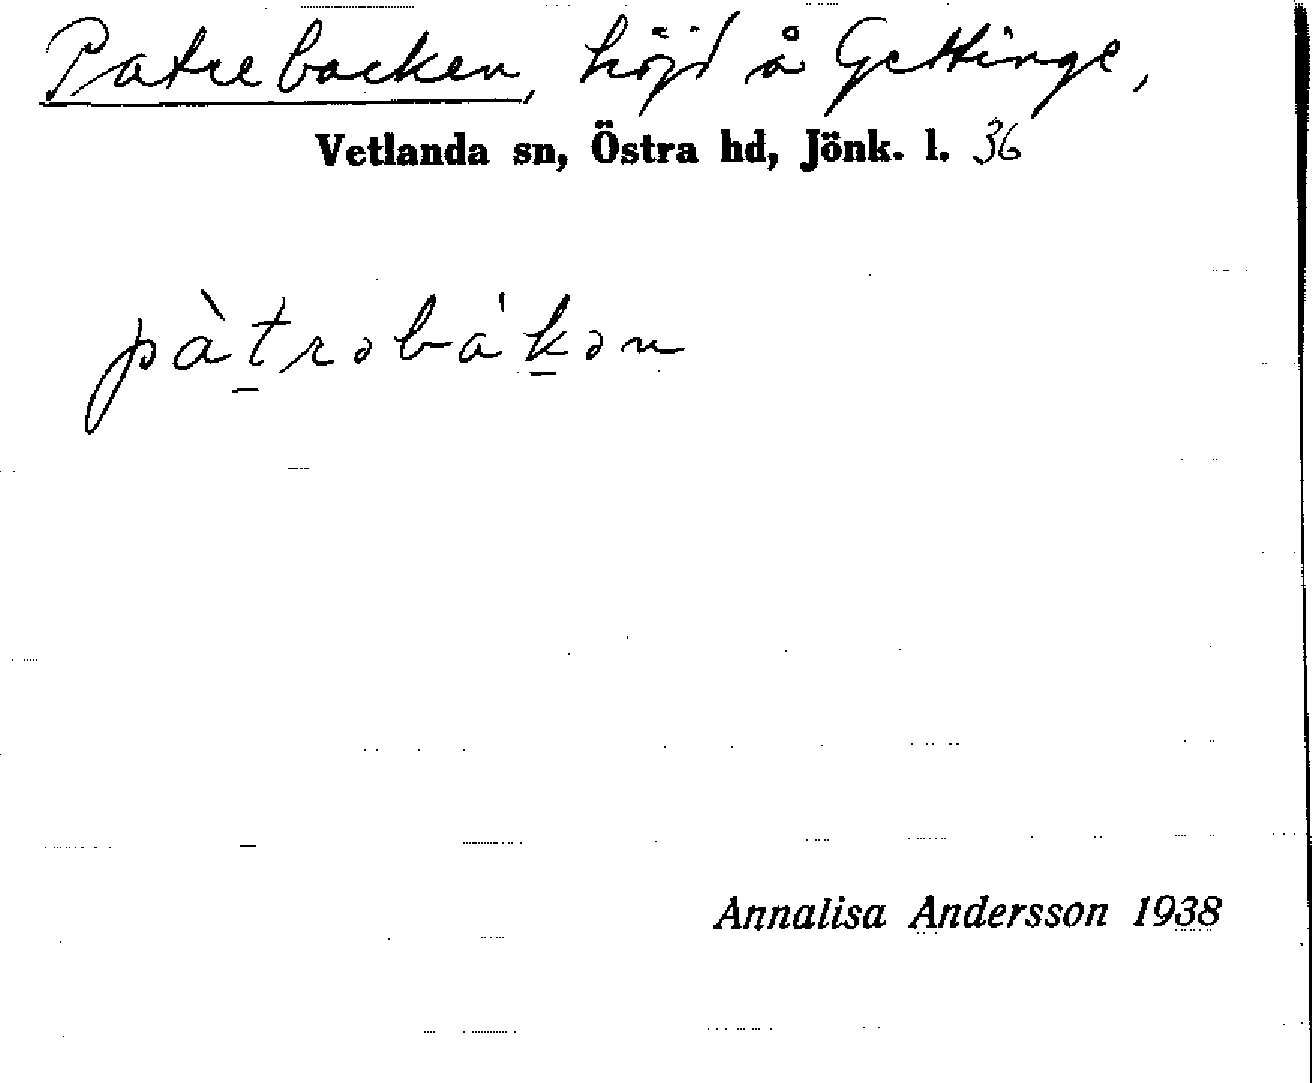 Patrebacken, höjd å Gettinge,
Vetlanda sn, Östra hd, Jönk. l. 36
pàt̠rəbák̠ən
Annalisa Andersson 1938